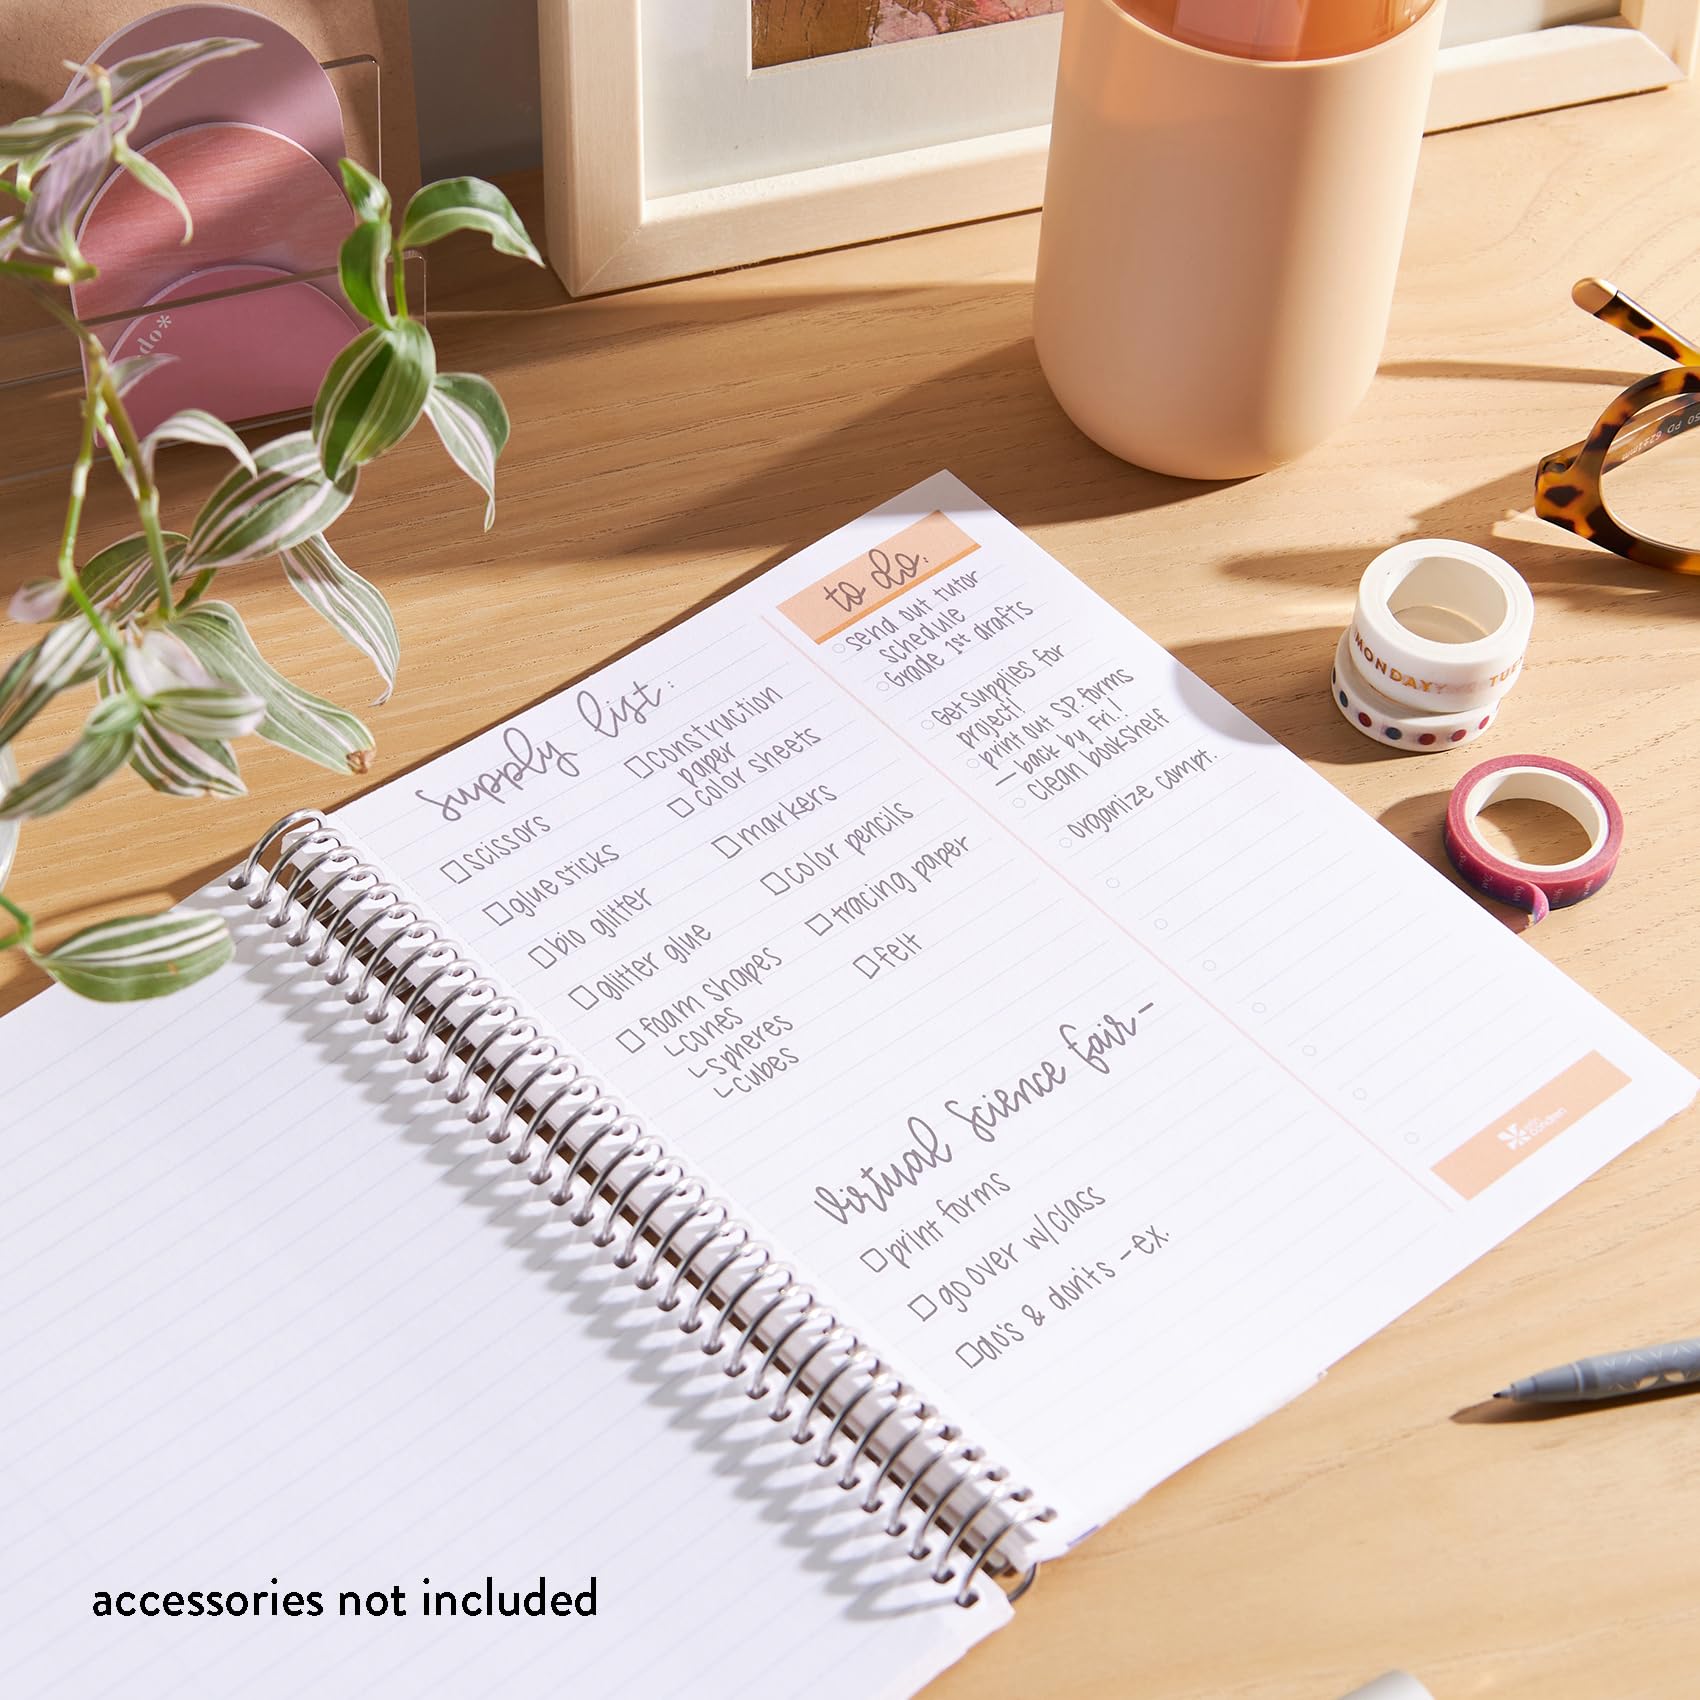 do*
supply list:
□ scissors
□ glue sticks
□ bio glitter
□ glitter glue
□ foam shapes
↳ cones
↳ spheres
↳ cubes
□ construction
paper
□ color sheets
□ markers
□ color pencils
□ tracing paper
□ felt
Virtual Science Fair -
□ print forms
□ go over w/class
□ do's & don'ts - ex.
to do:
send out tutor
schedule
Grade 1st drafts
Get Supplies for
project!
print out SP. forms
- back by Fri.!
clean bookshelf
organize compt.
erin
condren
MONDAY TUE
accessories not included